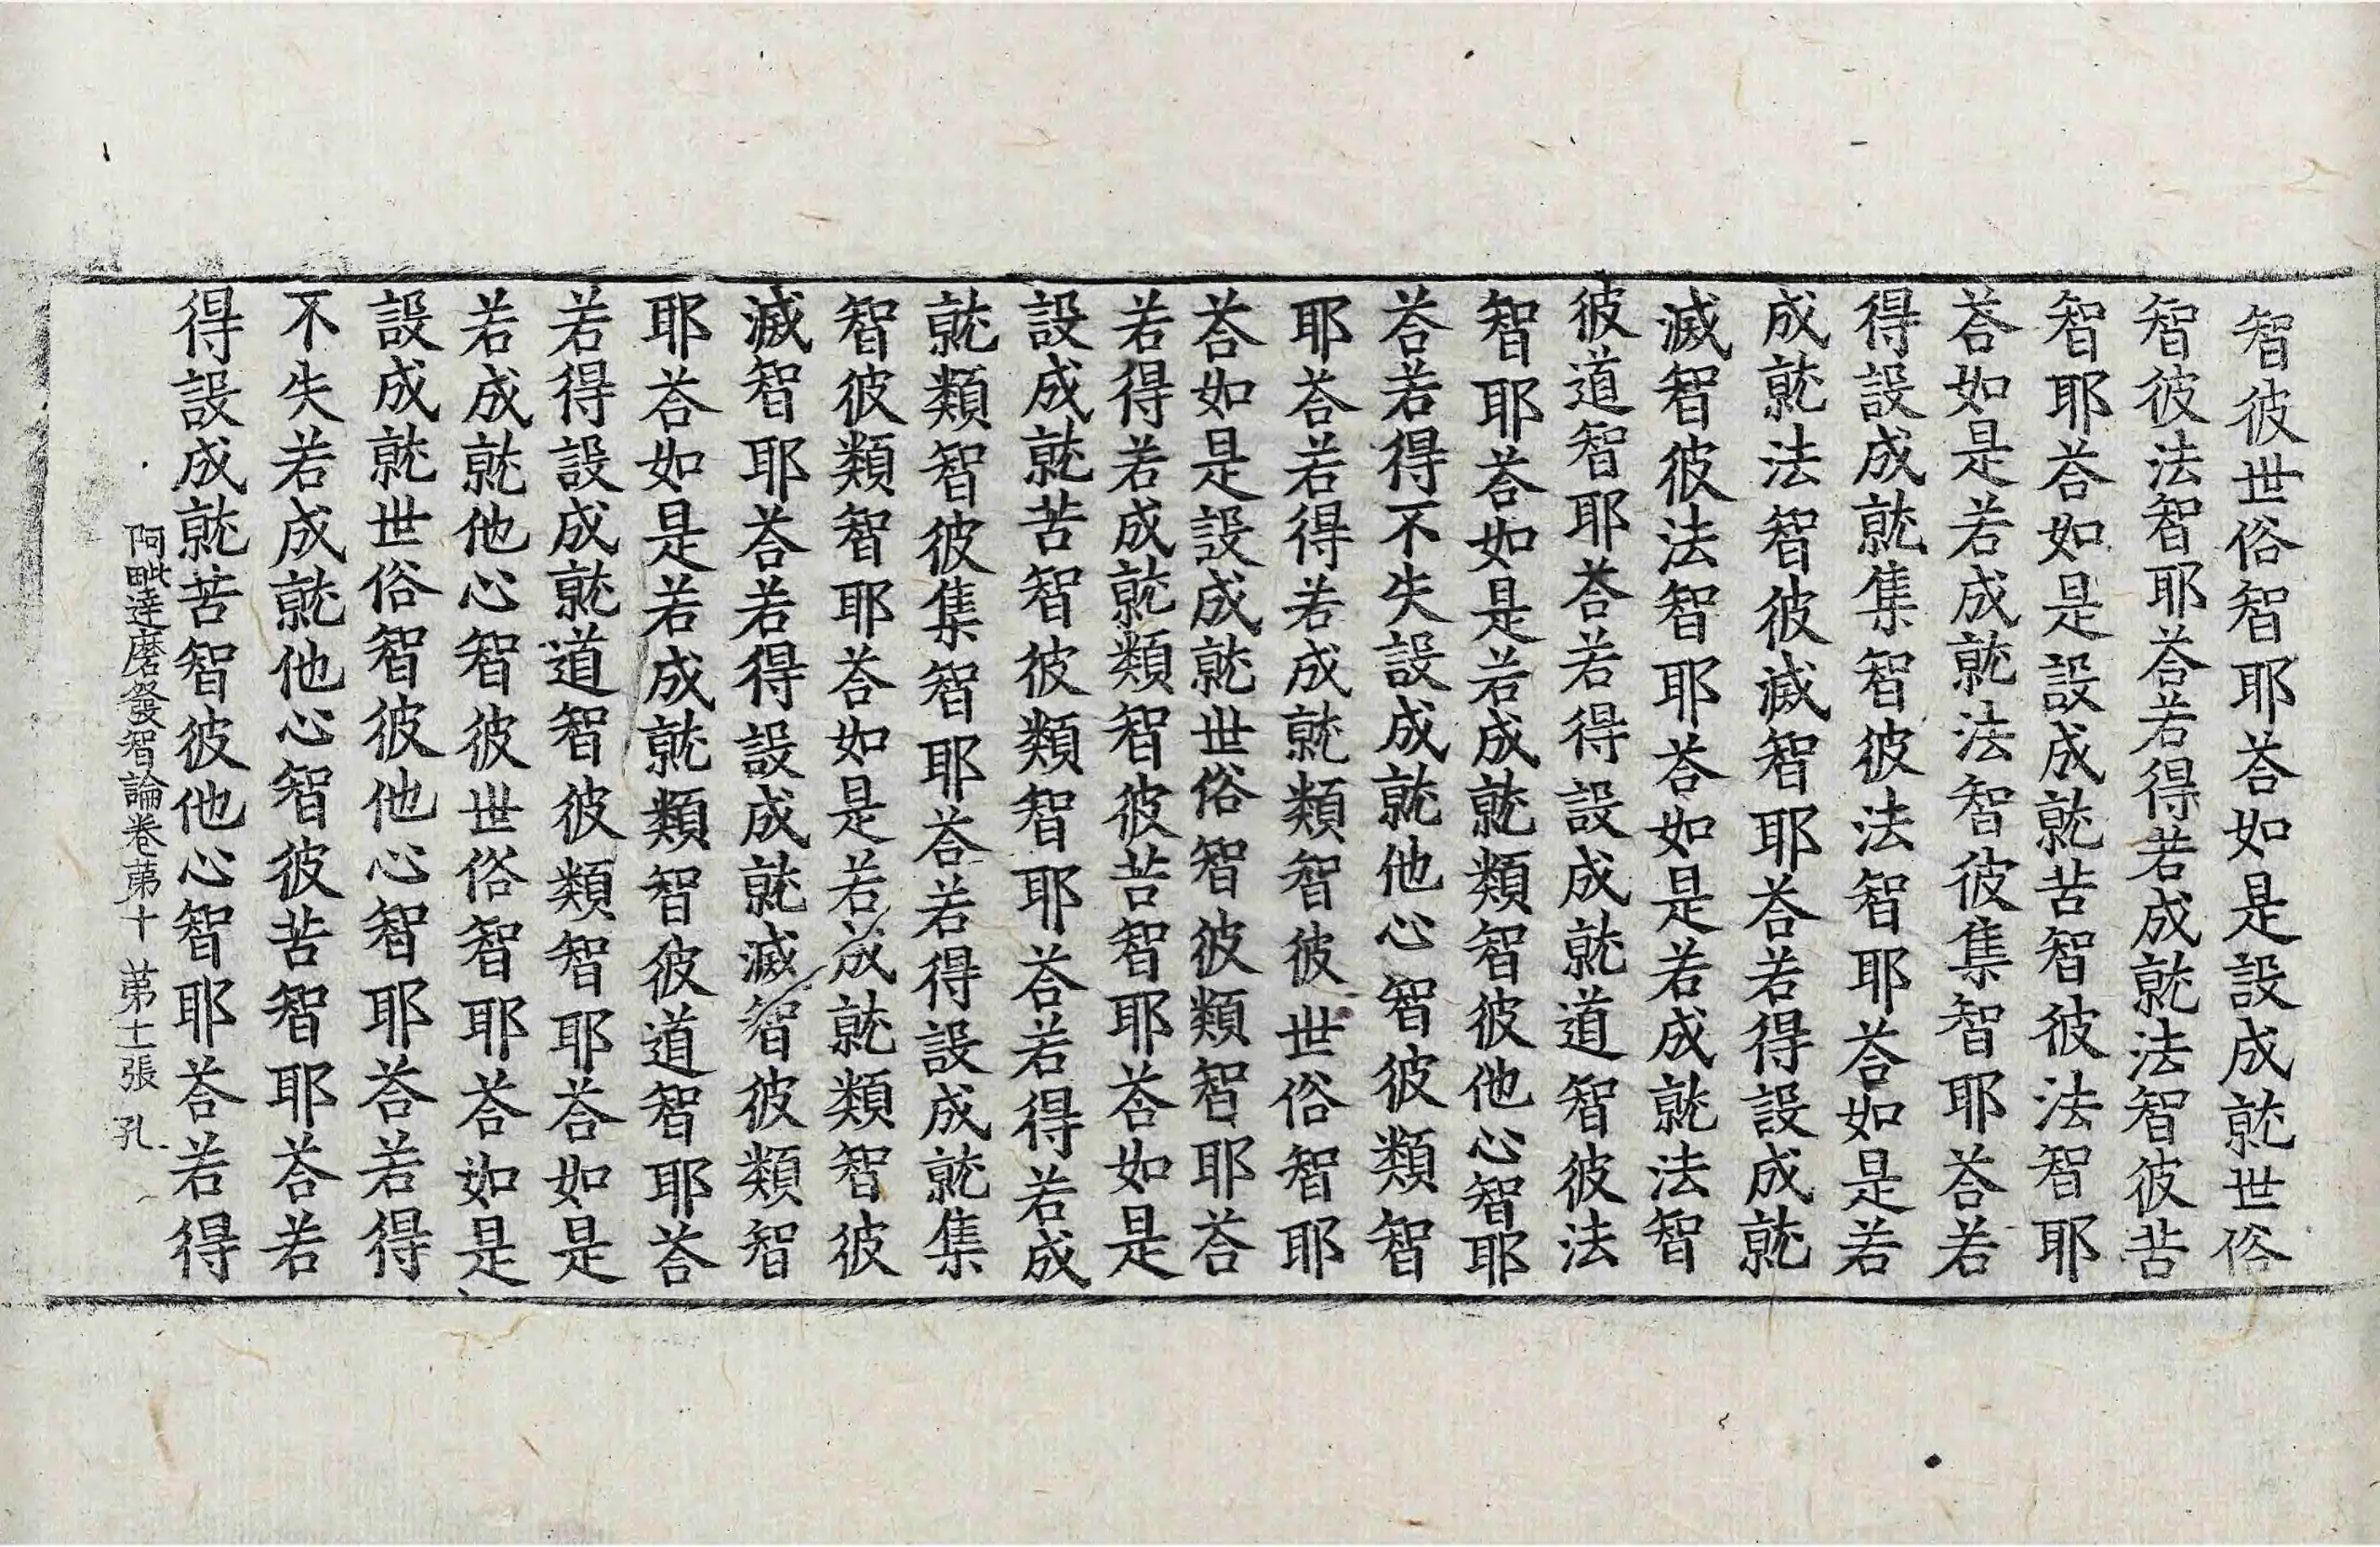 智彼世俗智耶荅如是設成就世俗
智彼法智耶荅若得若成就法智彼苦
智耶荅如是設成就苦智彼法智耶
荅如是若成就法智彼集智耶荅若
得設成就集智彼法智耶荅如是若
成就法智彼滅智耶荅若得設成就
滅智彼法智耶荅如是若成就法智
彼道智耶荅若得設成就道智彼法
智耶荅如是若成就類智彼他心智耶
荅若得不失設成就他心智彼類智
耶荅若得若成就類智彼世俗智耶
荅如是設成就世俗智彼類智耶荅
若得若成就類智彼苦智耶荅如是
設成就苦智彼類智耶荅若得若成
就類智彼集智耶荅若得設成就集
智彼類智耶荅如是若成就類智彼
滅智耶荅若得設成就滅智彼類智
耶荅如是若成就類智彼道智耶荅
若得設成就道智彼類智耶荅如是
若成就他心智彼世俗智耶荅如是
設成就世俗智彼他心智耶荅若得
不失若成就他心智彼苦智耶荅若
得設成就苦智彼他心智耶荅若得
阿毗達磨發智論卷苐十 苐士張 孔